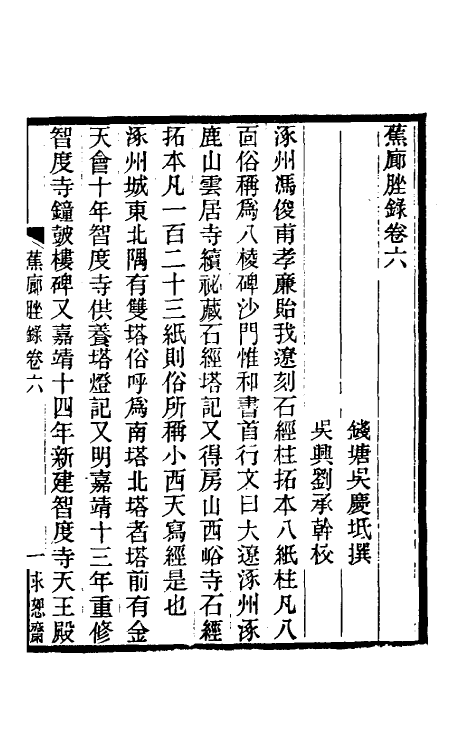 蕉廊脞錄卷六
錢塘吳慶坻撰
吳興劉承幹校
涿州馮俊甫孝廉貽我遼刻石經柱拓本八紙柱凡八
面俗稱爲八棱碑沙門惟和書首行文曰大遼涿州涿
鹿山雲居寺續祕藏石經塔記又得房山西峪寺石經
拓本凡一百二十三紙則俗所稱小西天寫經是也
涿州城東北隅有雙塔俗呼爲南塔北塔者塔前有金
天會十年智度寺供養塔燈記又明嘉靖十三年重修
智度寺鐘皷樓碑又嘉靖十四年新建智度寺天王殿
蕉廊脞錄卷六
一
求恕齋